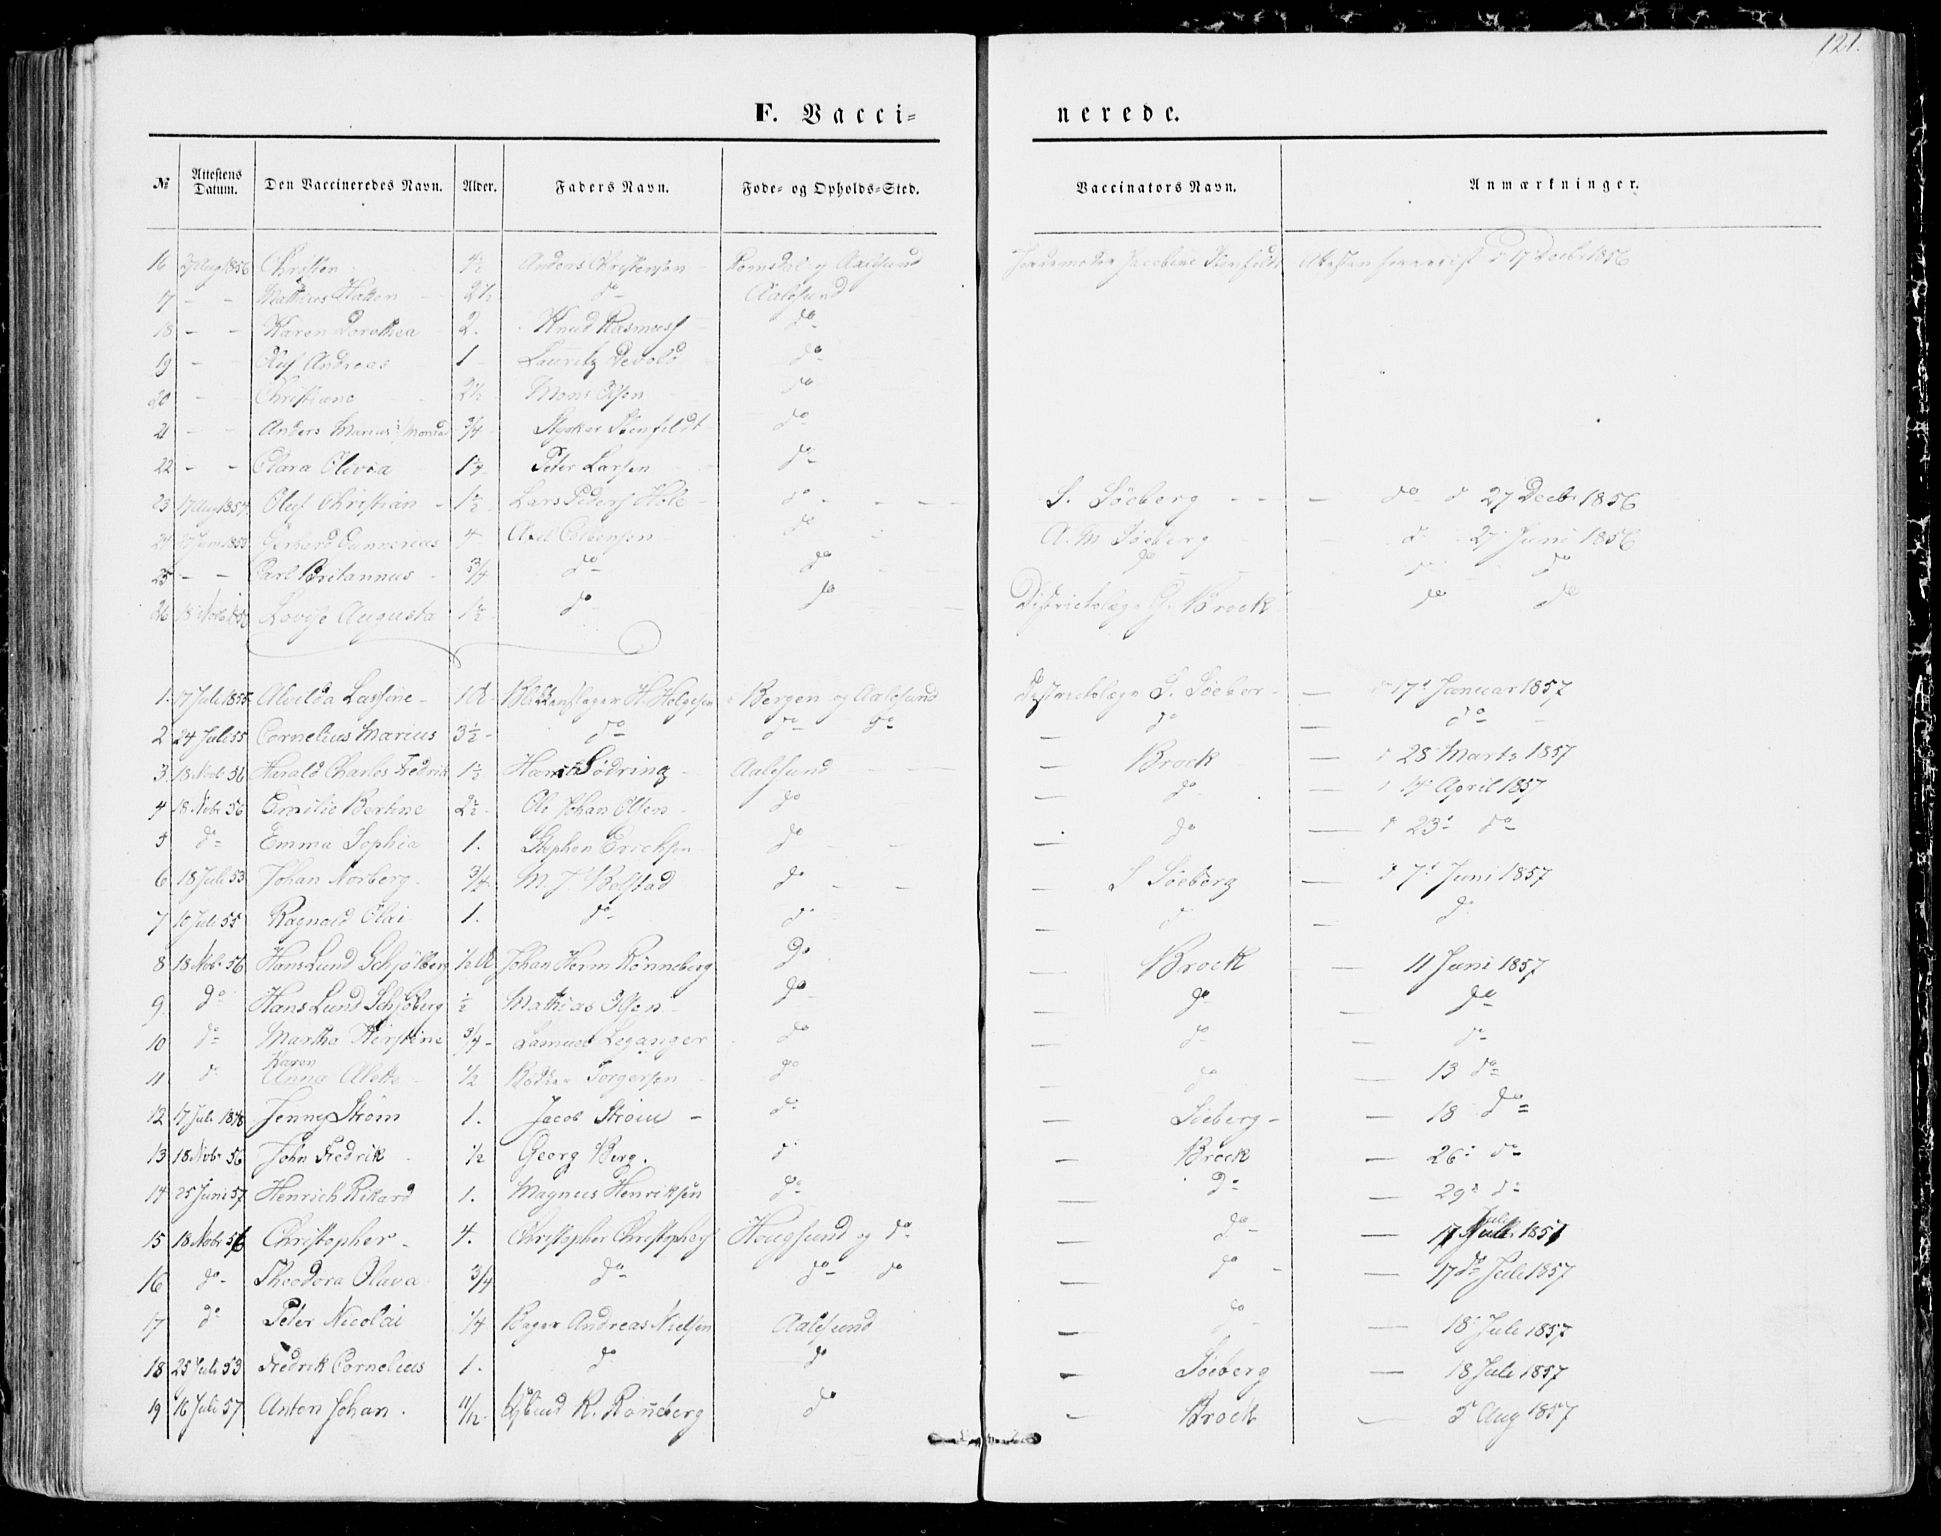 121.
F. Vacci- nerede.
№ Attestens Datum. Den Vaccineredes Navn. Alder. Faders Navn. Føde- og Opholds-Sted. Vaccinators Navn. Anmærkninger.
16 27 Aug 1856 Christen 4½ Anders Christensen Romsdal og Aalesund Jordemoder Jacobine Stenfeldt Attesten forevist d 17 Decbr 1856
17 - - Mathias Hatten 2½ do Aalesund
18 - - Karen Dorothea 2. Knud Rasmuss do
19 - - Oluf Andreas 1 Lauritz Devold do
20 - - Christiane 2½ Mons Olsen do
21 - - Anders Marius 3/4 Stenfeldt do
22 - - Clara Olivia 1¾ Peter Larsen do
23 17 Aug 1854 Oluf Christian 1½ Lars Peders Hole do - - - S. Söeberg - - - do d 27 Decbr 1856
24 Juni 1853 Gerhard Gunnerius 4 Axel do A. M Söeberg - d. 27 Juni 1856
25 - - Carl Britannus 3/4 do do do do
26 18 Nobr 1856 Lovise Augusta 1½ do do Districtslæge G. Brock do do
1. 17 Juli 1855 Alvilda Lassine 1 A. Blikkenslager H. Helgesen Bergen og Aalesund Districtslæge S. Söeber - d 17d Januar 1857
2 24 Juli 55 Cornelius Marius 3½ do do do do do
3. 18 Nobr 56 Herald Charles Fredrik 1½ Södring Aalesund - Brock - d 28 Marts 1857
4 18 Nobr 56 Emilie Bertine 2½ Ole Johan Olsen do - do - d 14 April 1857
5 do Emma Sophia 1. Stephen Ericksen do - do - d 23d do
6 18 Juli 53 Johan Norberg 3/4 M. J. Bolstad do - S Söeberg - d 7d Juni 1857
7 10 Juli 55 Ragnald Olai 1. do do - d - do
8 18 Nobr 56 Hans Lund Schjölberg ½ A Johan Herm Rönneberg do - Brock - 11 Juni 1857
9 do Hans Lund Schjöberg ½ Mathias Olsen do - do - do
10 do Martha Kirstine 3/4 Samuel Leganger do - do - do
11 do Karen Anna Alette ½ Torgersen do - do - 13 do
12 17 Juli 1848 Jenny Ström 1. Jacob Ström do - Söeberg - 18 do
13 18 Nobr 56 John Fredrik ½ Georg Berg. d - Brock - 26d do
14 25 Juni 57 Henrich Rikard 1. Magnus Henriksen do - do - 29d do
15 18 Nobr 56 Christopher 4. Christopher Christophers Hougsund og do - do - 17 Juli 1857
16 do Theodora Olava 3/4 do do do - do - 17de Juli 1857
17 do Peter Nicolai ¼ Bager Andreas Nielsen Aalesund - do - 18 Juli 1857
18 25 Juli 53 Fredrik Cornelius 1. do do - Söeberg - 18 Juli 1857
19 16 Juli 57 Anton Johan. 11/12 R. Rönneberg do - Brock - 5 Aug 1857